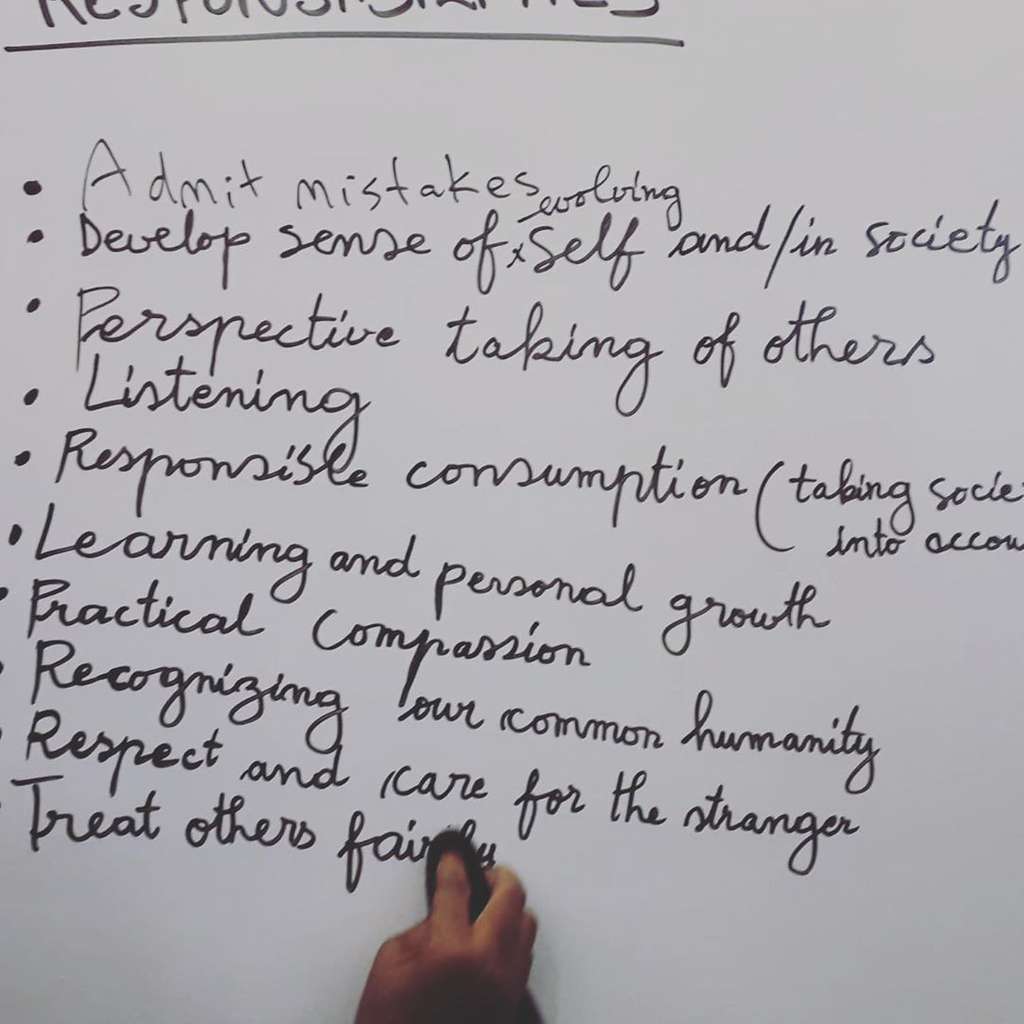 RESPONSIBILITIES
• Admit mistakes
• Develop sense of evolving self and/in society
• Perspective taking of others
• Listening
• Responsible consumption (taking socie
into accou
• Learning and personal growth
• Practical compassion
• Recognizing our common humanity
• Respect and care for the stranger
• Treat others